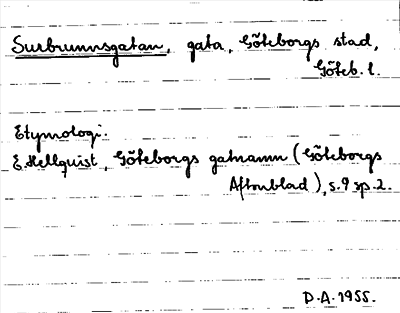 Surbrunnsgatan, gata, Göteborgs stad,
Göteb. l.
Etymologi.
E. Hellquist, Göteborgs gatnamn (Göteborgs
Aftonblad), s. 9 sp. 2.
D.A. 1955.